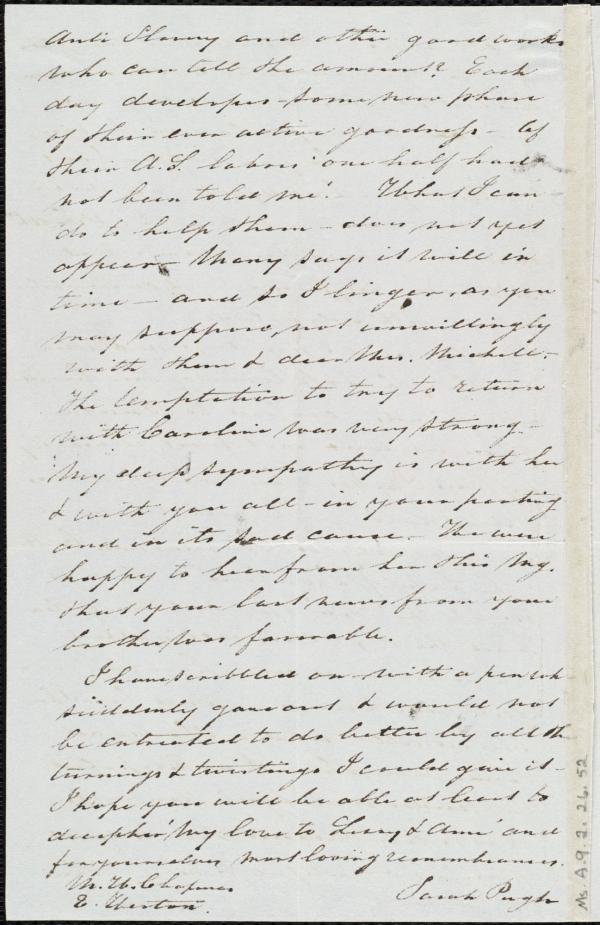 Anti Slavery and other good works
who can tell the amount? Each
day developes some new phase
of their ever active goodness - Of
their A.S. labors one half had
not been told me! - What I can
do to help them - does not yet
appear - Mary says it will in
time - and so I linger, as you
may suppose, not unwillingly
with them & dear Mrs. Michell. -
The temptation to try to return
with Caroline was very strong -
My deep sympathy is with her
& with you all - in your parting
and in its sad cause - We were
happy to hear from her this mg.
that your last news from your
brother was favorable.
I have scribbled on - with a pen wh
suddenly gave out & would not
be entreated to do better by all the
turnings & twistings I could give it -
I hope you will be able at least to
decipher my love to & and
for yourselves most loving remembrances.
M. W. Chapman
E. Weston.
Sarah Pugh
Ms. A. 9. 2. 26. 52